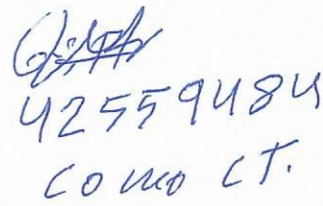 42559484
como CT.